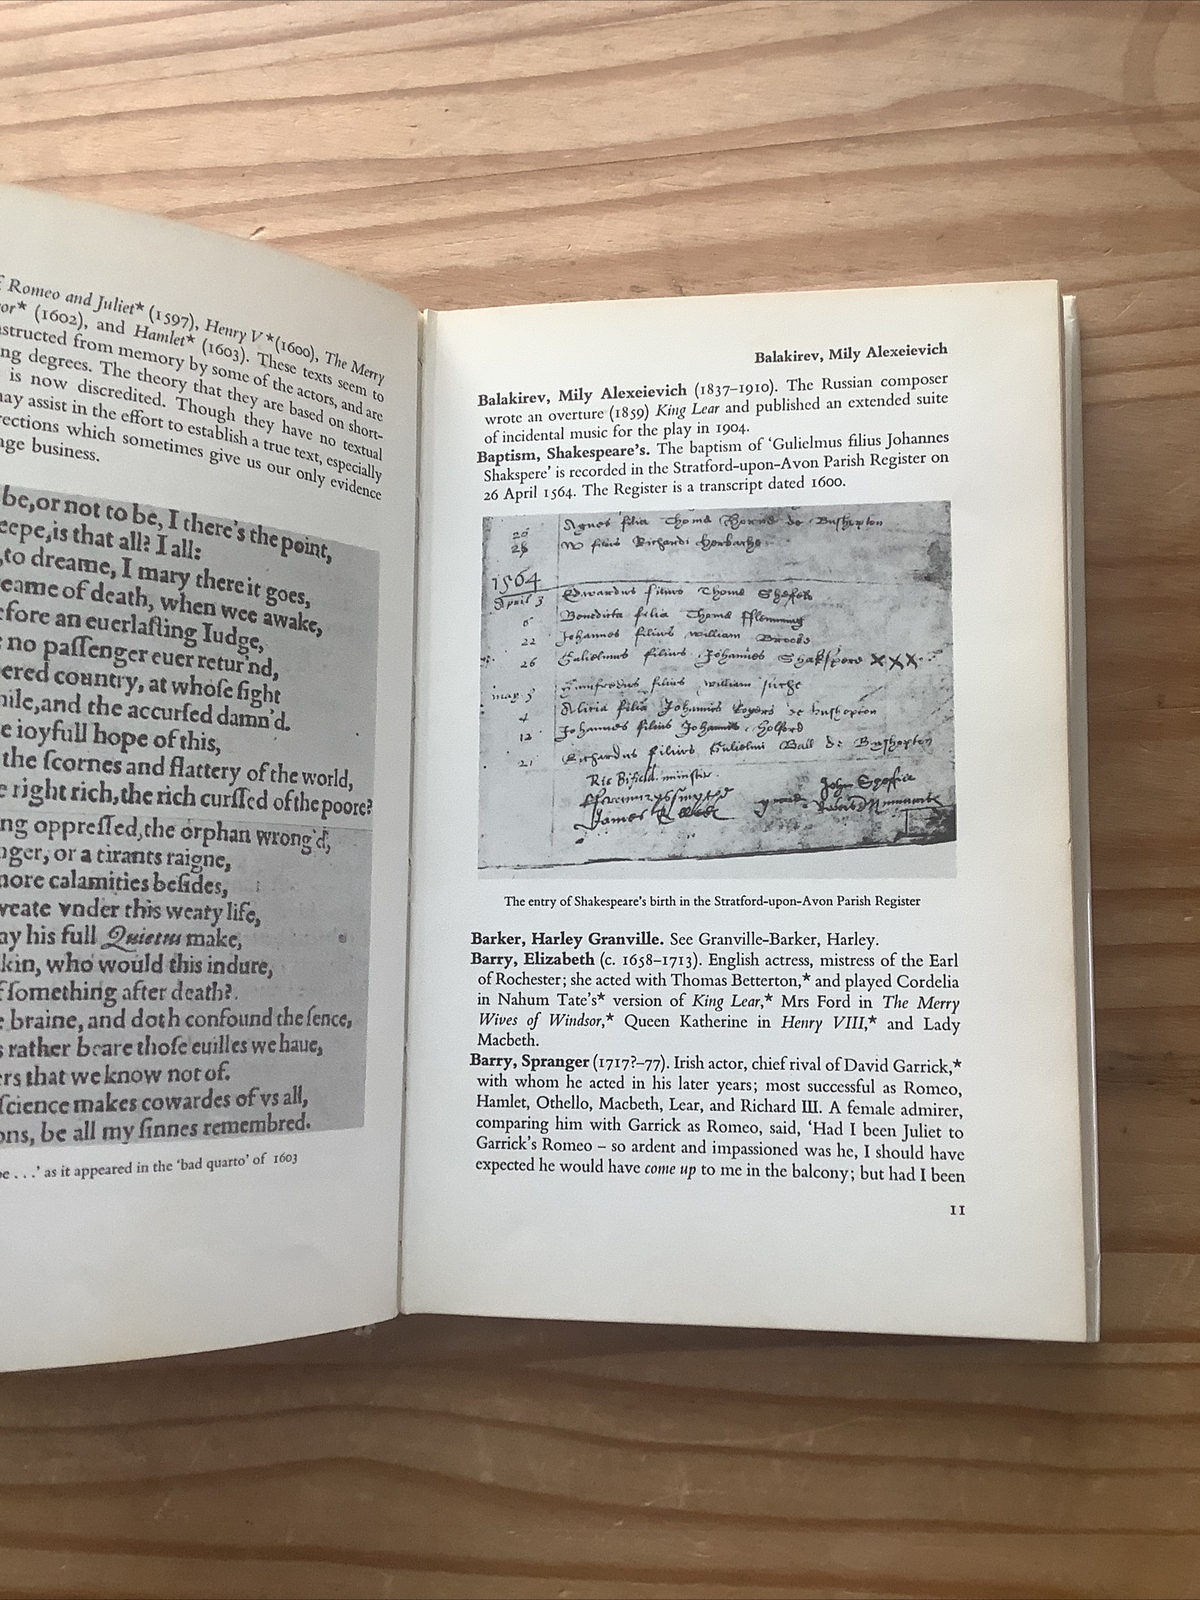 Romeo and Juliet* (1597), Henry V*(1600), The Merry
(1602), and Hamlet* (1603). These texts seem to
from memory by some of the actors, and are
degrees. The theory that they are based on short-
is now discredited. Though they have no textual
may assist in the effort to establish a true text, especially
which sometimes give us our only evidence
business.
be,or not to be, I there's the point,
is that all? I all:
to dreame, I mary there it goes,
dreame of death, when wee awake,
an euerlaſting Iudge,
no paſſenger euer retur'nd,
country, at whoſe ſight
and the accurſed damn'd.
ioyfull hope of this,
the ſcornes and flattery of the world,
right rich,the rich curſſed of the poore?
oppreſſed,the orphan wrong'd,
or a tirants raigne,
more calamities beſides,
vnder this weary life,
his full Quietus make,
who would this indure,
ſomething after death?
braine, and doth confound the ſence,
rather beare thoſe euilles we haue,
that we know not of.
makes cowardes of vs all,
be all my ſinnes remembred.
. . .' as it appeared in the 'bad quarto' of 1603
Balakirev, Mily Alexeievich
Balakirev, Mily Alexeievich (1837–1910). The Russian composer
wrote an overture (1859) King Lear and published an extended suite
of incidental music for the play in 1904.
Baptism, Shakespeare's. The baptism of 'Gulielmus filius Johannes
Shakspere' is recorded in the Stratford-upon-Avon Parish Register on
26 April 1564. The Register is a transcript dated 1600.
28
1564
April 3 Edwardus filius Thome
6 Benedicta filia Thome
22 Johannes filius William Brooks
26 Gulielmus filius Johannes Shakspere XXX
may filius William
4 Alicia filia Johannis
12 Johannes filius Johannis Holford
21 Richardus filius Gulielmi Ball de
minister
The entry of Shakespeare's birth in the Stratford-upon-Avon Parish Register
Barker, Harley Granville. See Granville-Barker, Harley.
Barry, Elizabeth (c. 1658–1713). English actress, mistress of the Earl
of Rochester; she acted with Thomas Betterton,* and played Cordelia
in Nahum Tate's* version of King Lear,* Mrs Ford in The Merry
Wives of Windsor,* Queen Katherine in Henry VIII,* and Lady
Macbeth.
Barry, Spranger (1717?–77). Irish actor, chief rival of David Garrick,*
with whom he acted in his later years; most successful as Romeo,
Hamlet, Othello, Macbeth, Lear, and Richard III. A female admirer,
comparing him with Garrick as Romeo, said, 'Had I been Juliet to
Garrick's Romeo – so ardent and impassioned was he, I should have
expected he would have come up to me in the balcony; but had I been
11